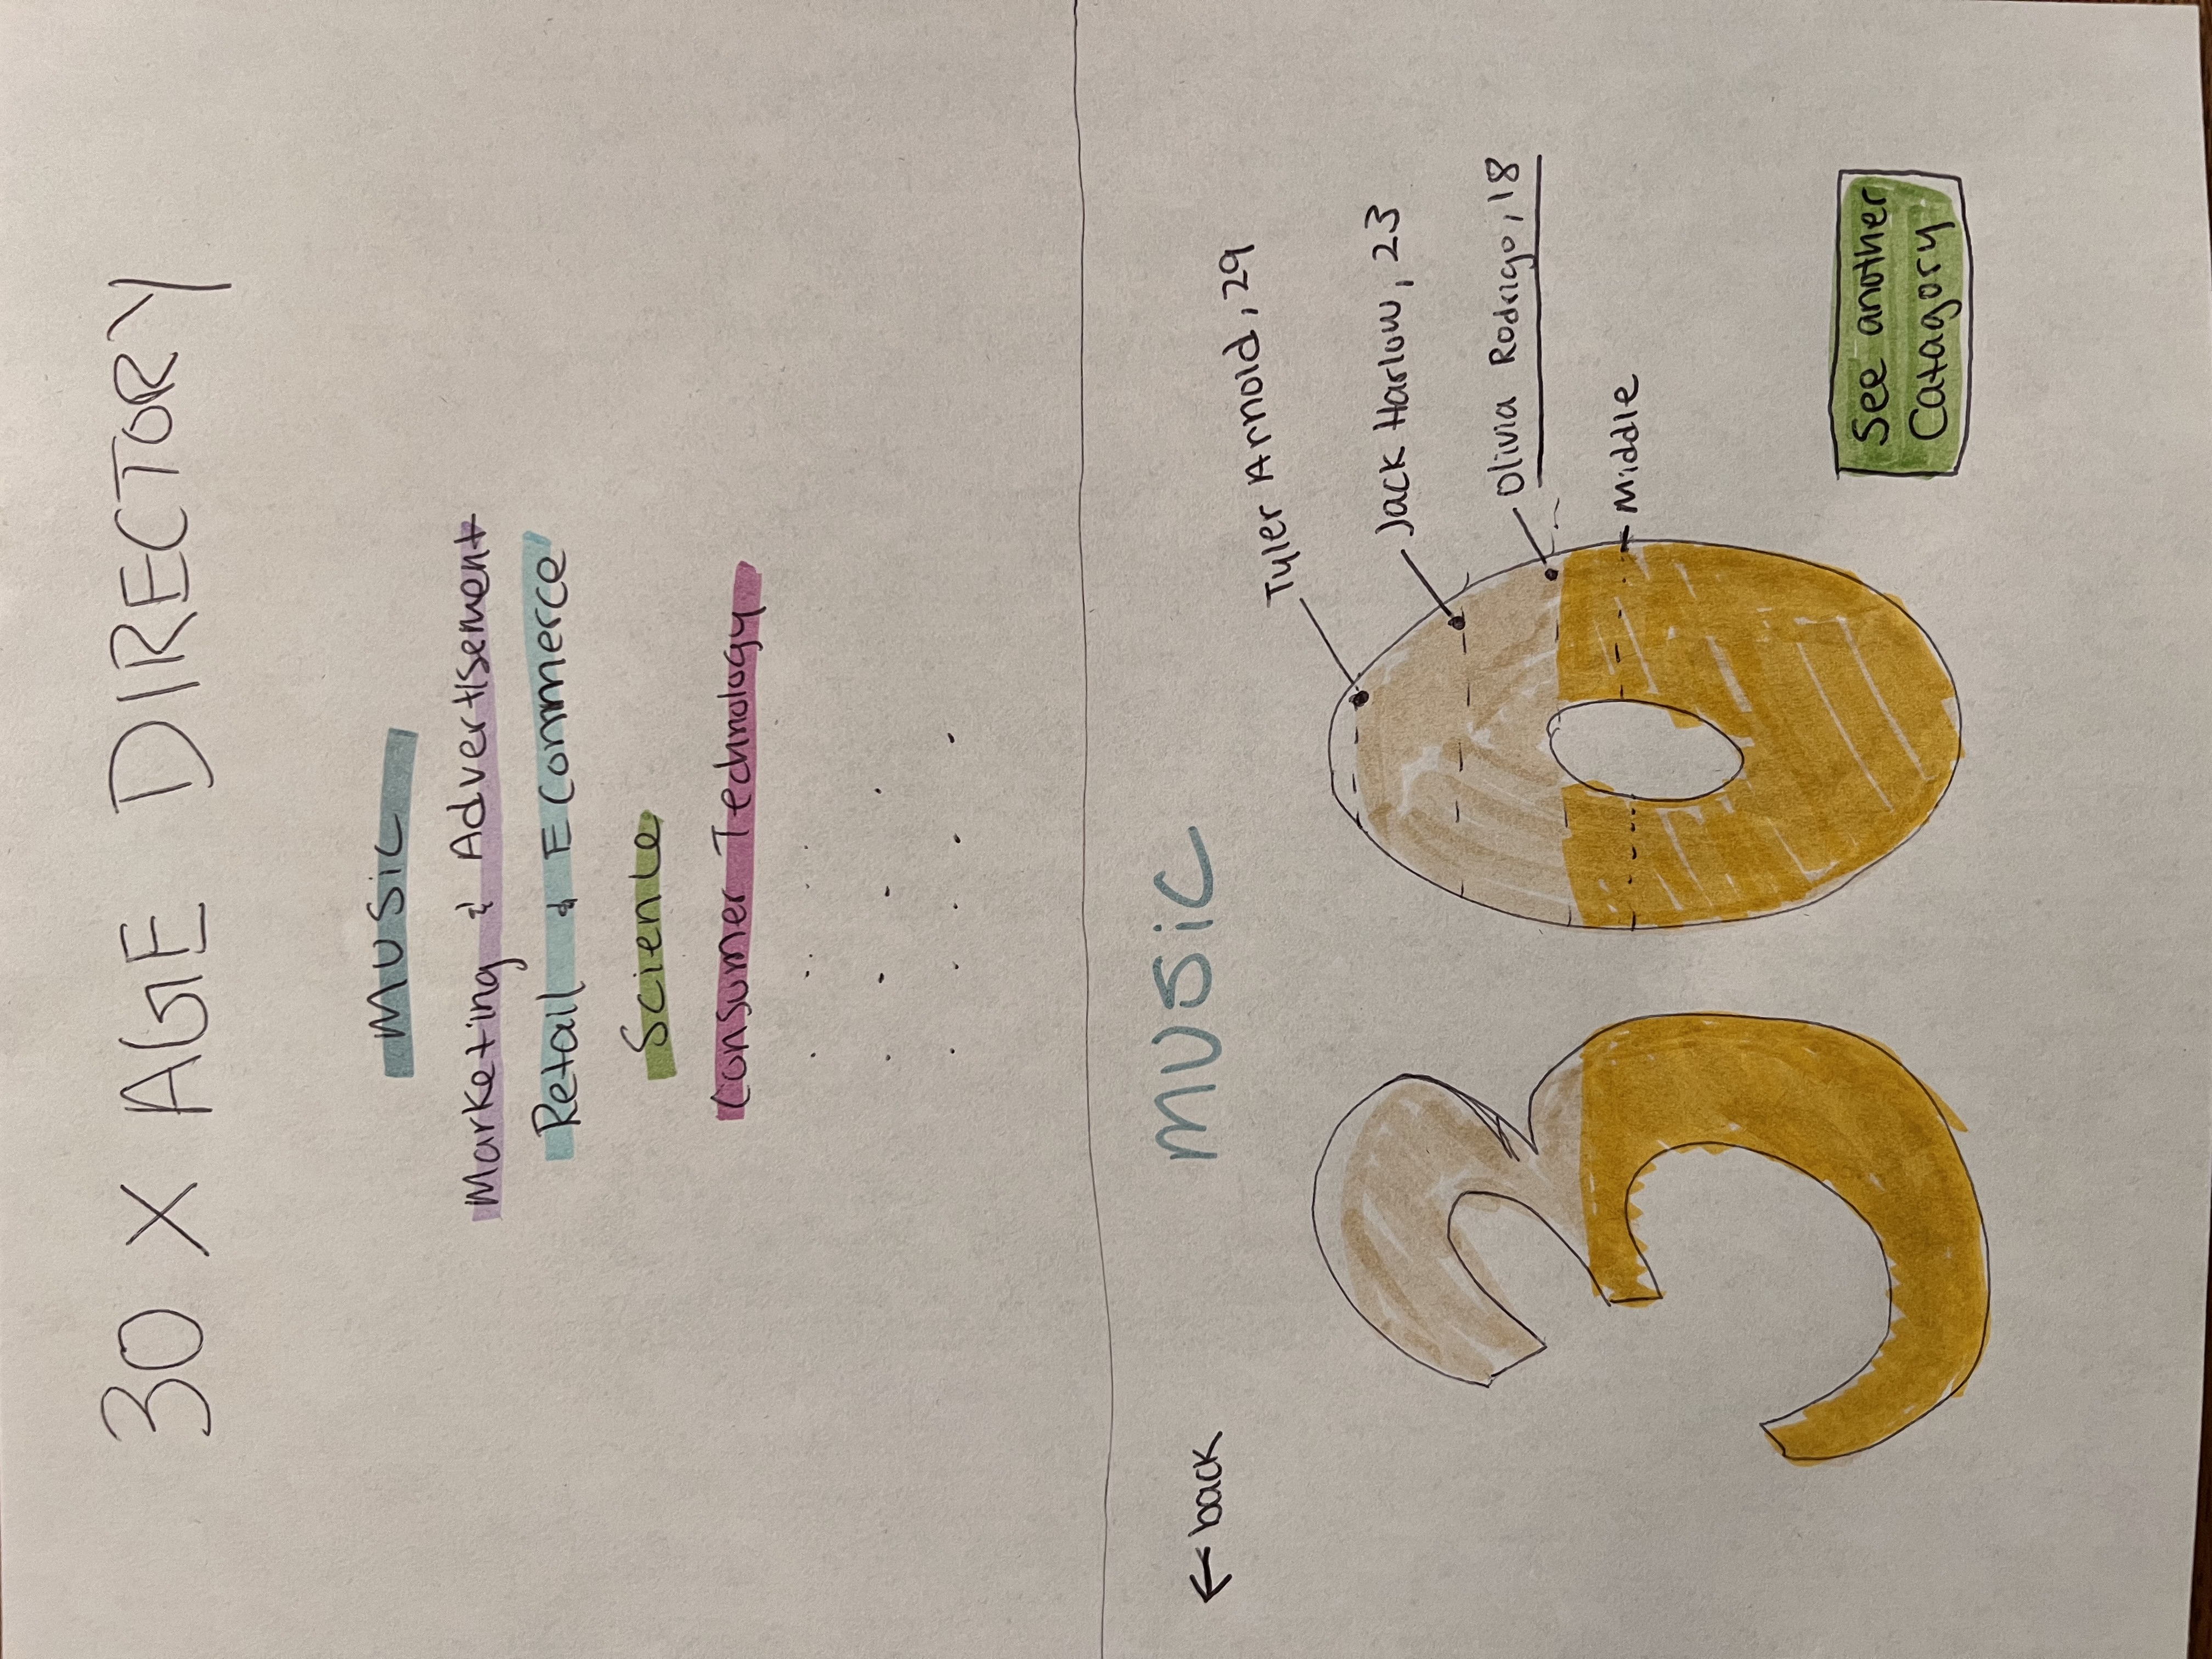 30 X AGE DIRECTORY
MUSiC
Marketing & Advertisement
Retail & ECommerce
Science
Consumer Technology
← back
MUSiC
Tyler Arnold, 29
Jack Harlow, 23
Olivia Rodrigo, 18
Middle
30
See another
Catagory